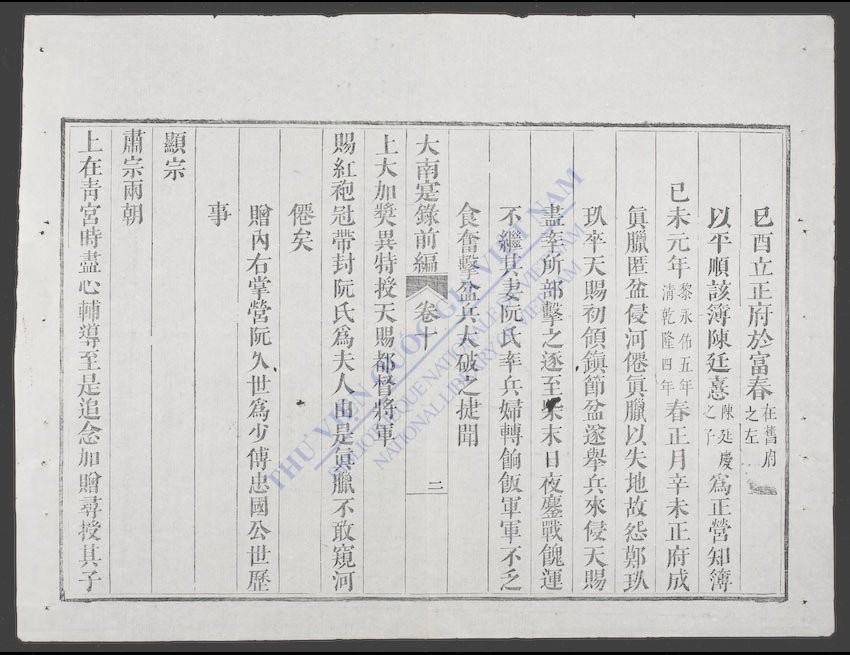 巳酉立正府於富春在舊府之左
以平順該簿陳廷憙陳廷慶之子爲正營知簿
己未元年黎永佑五年清乾隆四年春正月辛未正府成
眞臘匿盆侵河僊眞臘以失地故怨鄭玖
玖卒天賜初領鎭節盆遂舉兵來侵天賜
盡率所部擊之逐至柴末日夜鏖戰餽運
不繼其妻阮氏率兵婦轉餉飯軍軍不乏
食奮擊盆兵大破之捷聞
大南寔錄前編 卷十 二
上大加奬異特授天賜都督將軍
賜紅袍冠帶封阮氏爲夫人由是眞臘不敢窺河
僊矣
贈內右掌營阮久世爲少傅忠國公世歷
事
顯宗
肅宗兩朝
上在青宮時盡心輔導至是追念加贈尋授其子
THƯ VIỆN QUỐC GIA VIỆT NAM
BIBLIOTHÈQUE NATIONALE DU VIETNAM
NATIONAL LIBRARY OF VIETNAM